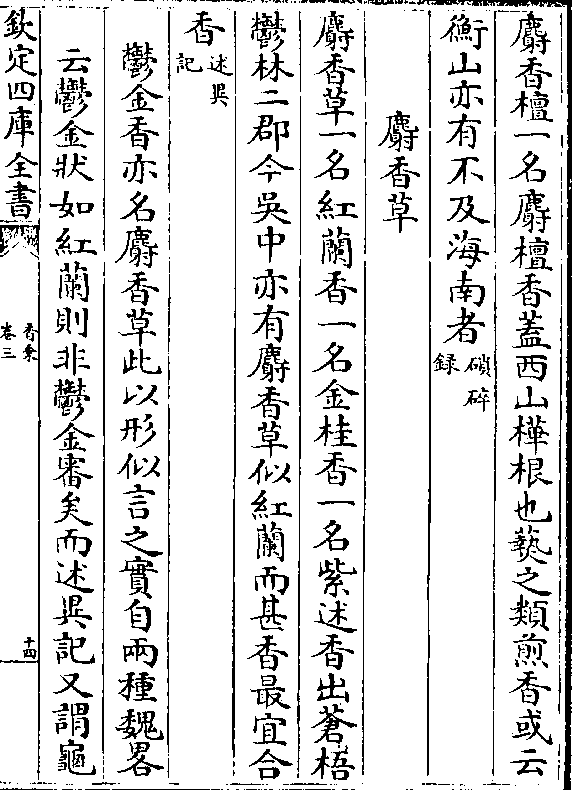 麝香檀一名麝檀香蓋西山樺根也爇之類煎香或云
衡山亦有不及海南者瑣碎録
麝香草
麝香草一名紅蘭香一名金桂香一名紫述香出蒼梧
鬱林二郡今吳中亦有麝香草似紅蘭而甚香最宜合
香述異記
鬱金香亦名麝香草此以形似言之實自兩種魏畧
云鬱金狀如紅蘭則非鬱金審矣而述異記又謂龜
欽定四庫全書
香乘
卷三
十四